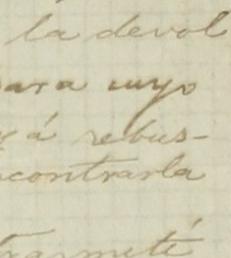 la devol
para cuyo
rá á rebus-
contrarla
trasmeté